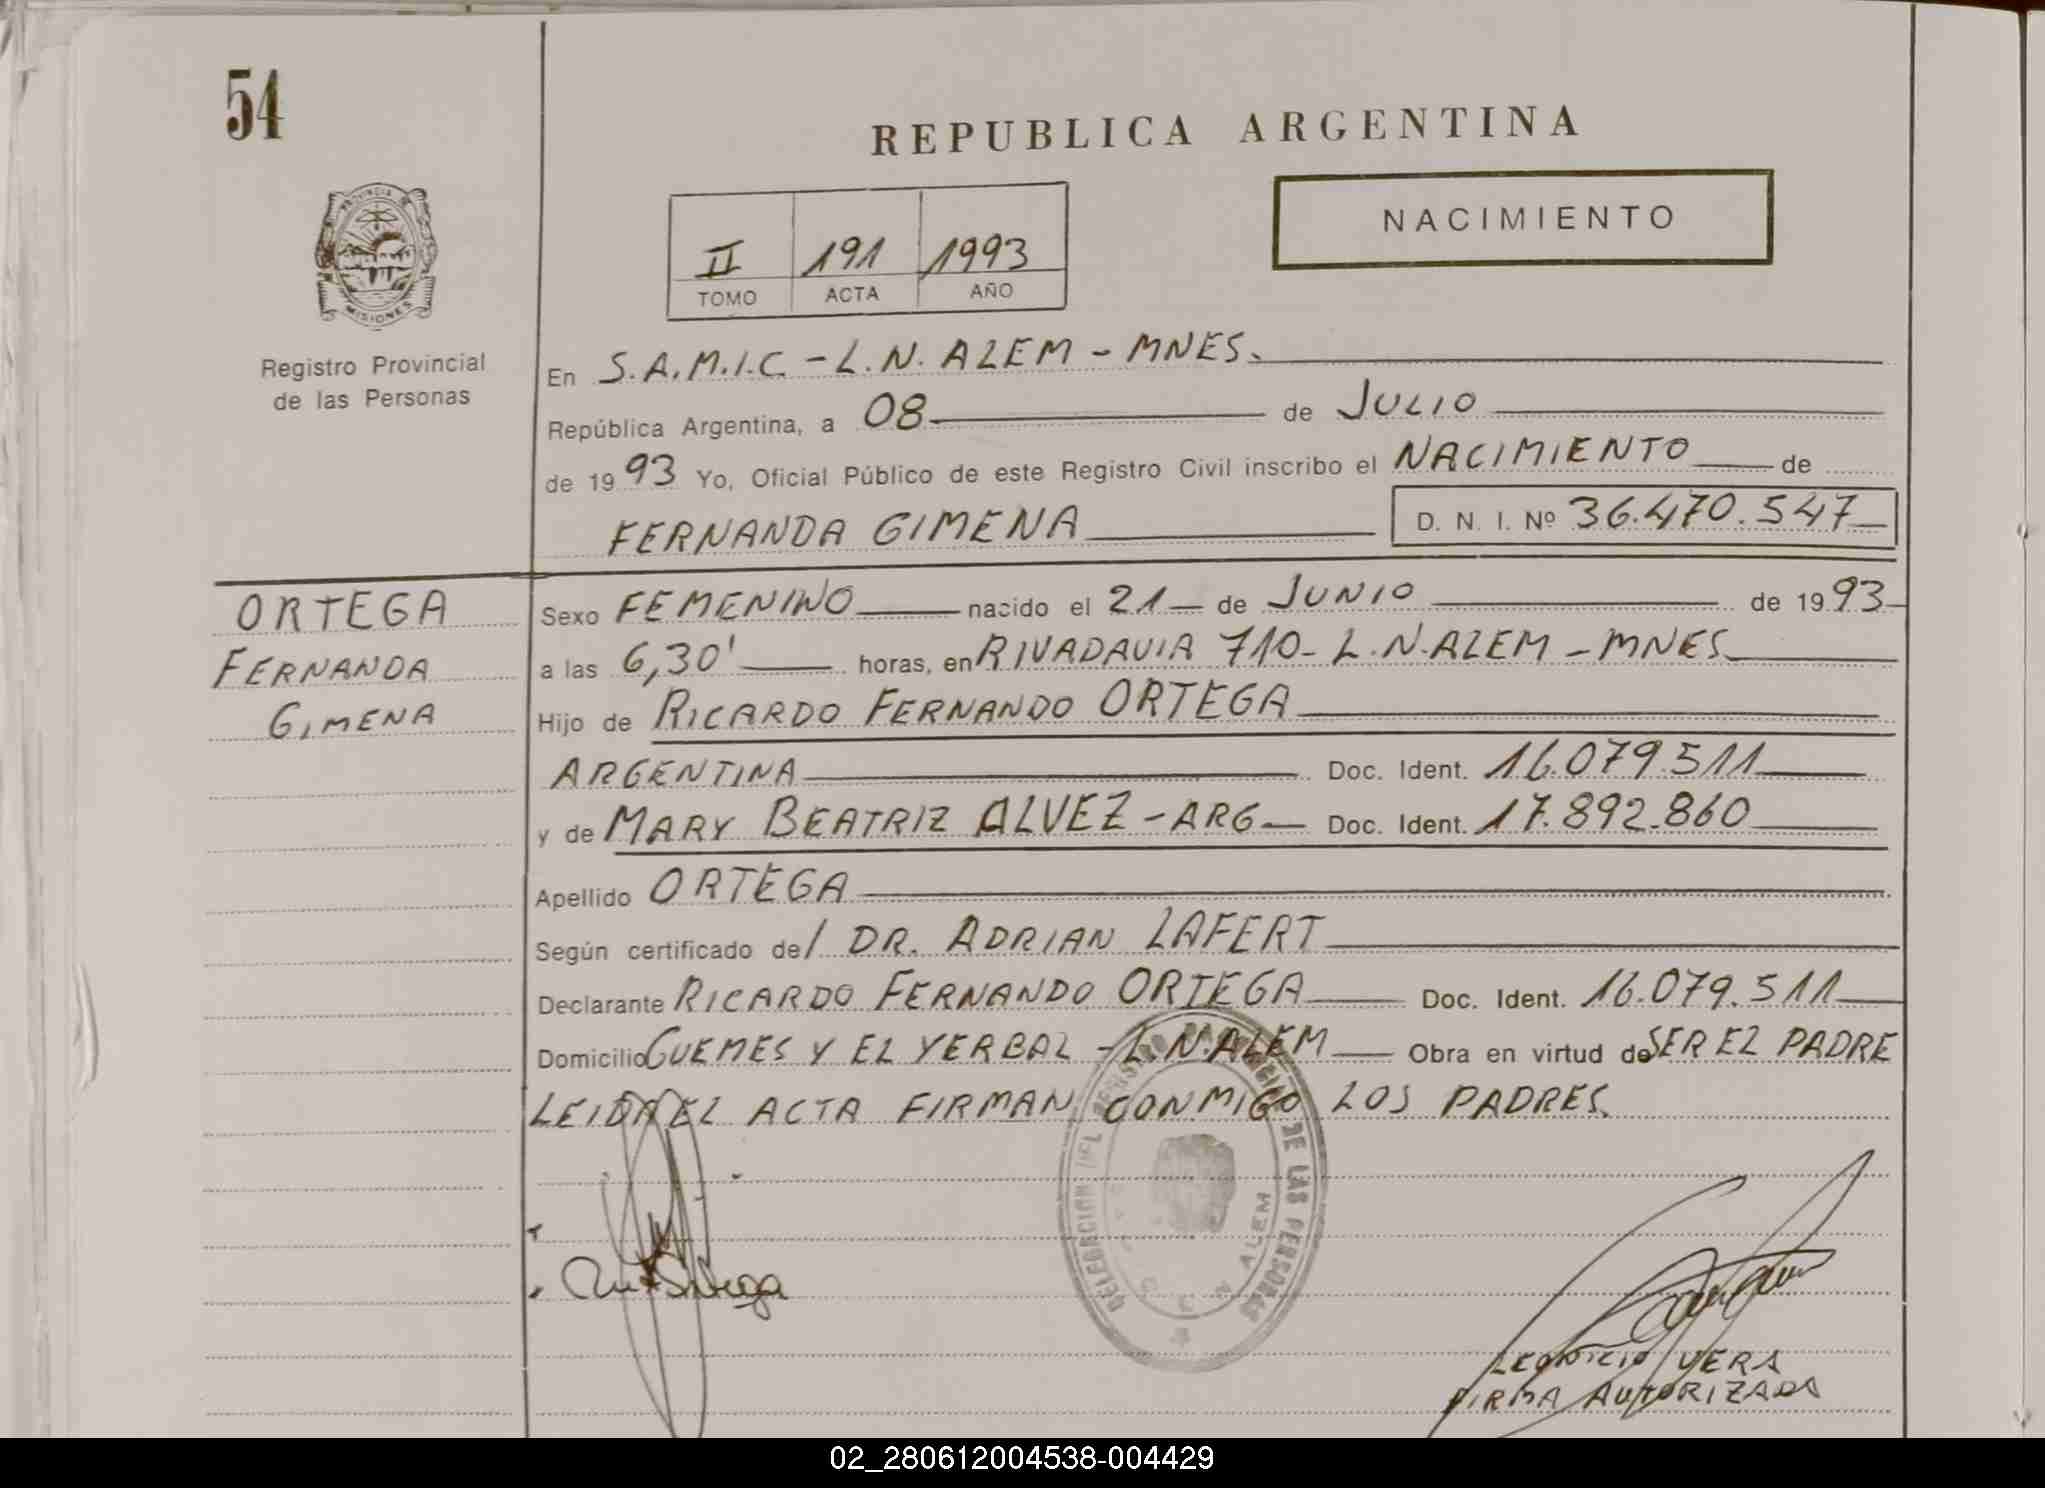 54
REPUBLICA ARGENTINA
PROVINCIA DE
MISIONES
NACIMIENTO
II 191 1993
TOMO ACTA AÑO
Registro Provincial
de las Personas
En S.A.M.I.C. - L.N. ALEM - MNES.
República Argentina, a 08 de JULIO
de 1993 Yo, Oficial Público de este Registro Civil inscribo el NACIMIENTO de
FERNANDA GIMENA D. N. I. Nº 36.470.547
ORTEGA
FERNANDA
GIMENA
Sexo FEMENINO nacido el 21 de JUNIO de 1993
a las 6,30' horas, en RIVADAVIA 710 - L.N. ALEM - MNES
Hijo de RICARDO FERNANDO ORTEGA
ARGENTINA Doc. Ident. 16.079.511
y de MARY BEATRIZ ALVEZ - ARG Doc. Ident. 17.892.860
Apellido ORTEGA
Según certificado del DR. ADRIAN LAFERT
Declarante RICARDO FERNANDO ORTEGA Doc. Ident. 16.079.511
Domicilio GUEMES Y EL YERBAL - L.N. ALEM Obra en virtud de SER EL PADRE
LEIDA EL ACTA FIRMAN CONMIGO LOS PADRES
DELEGACION DEL REGISTRO PROVINCIAL DE LAS PERSONAS
N ALEM
LEONICIO VERA
FIRMA AUTORIZADA
02_280612004538-004429